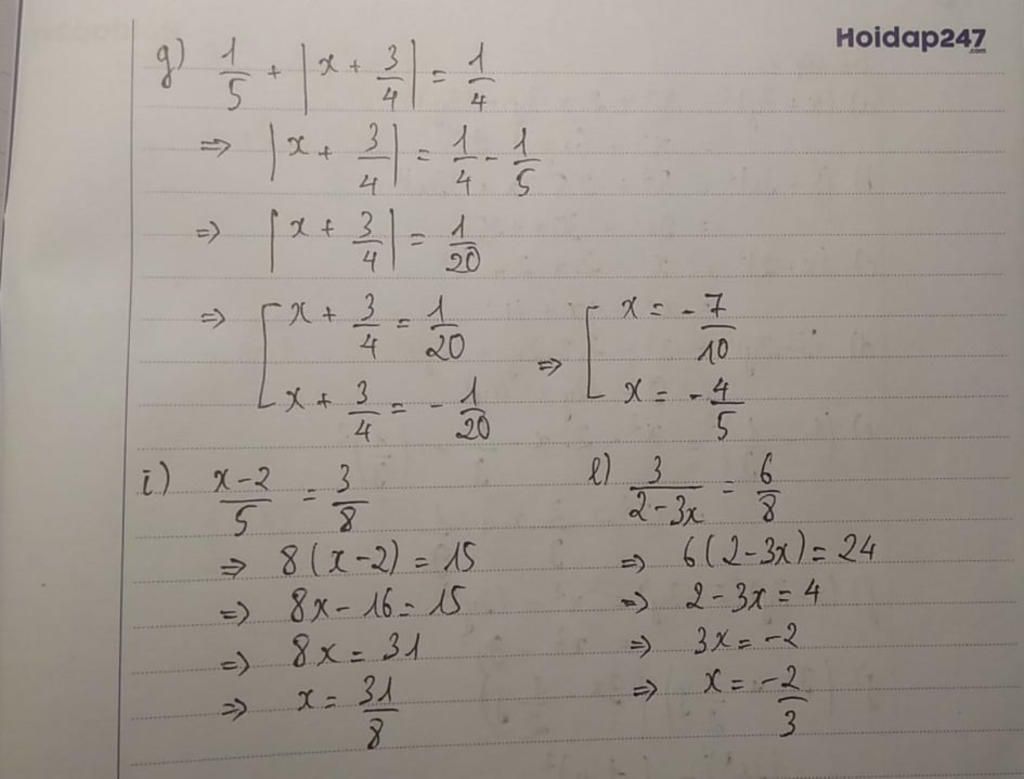 Hoidap247.com
g) 1/5 + |x + 3/4| = 1/4
⇒ |x + 3/4| = 1/4 - 1/5
⇒ |x + 3/4| = 1/20
⇒ [ x + 3/4 = 1/20 ⇒ [ x = -7/10
x + 3/4 = -1/20 x = -4/5
i) x-2/5 = 3/8
⇒ 8(x-2) = 15
⇒ 8x - 16 = 15
⇒ 8x = 31
⇒ x = 31/8
l) 3/2-3x = 6/8
⇒ 6(2-3x) = 24
⇒ 2-3x = 4
⇒ 3x = -2
⇒ x = -2/3